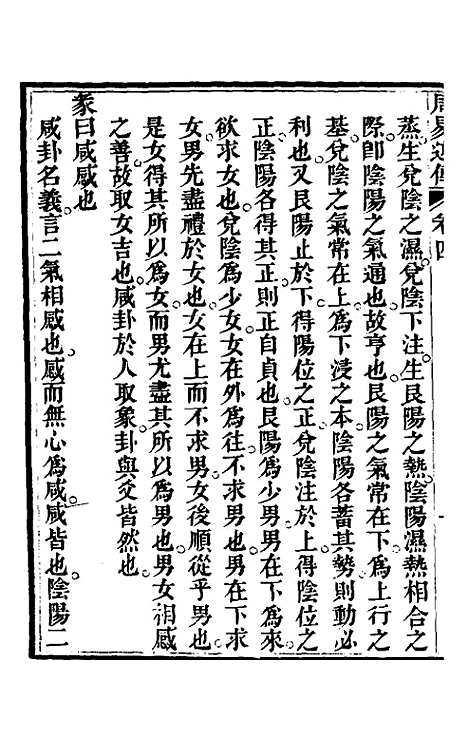 周易通傳 卷四
蒸生兌陰之濕兌陰下注生艮陽之熱陰陽濕熱相合之
際卽陰陽之氣通也故亨也艮陽之氣常在下爲上行之
基兌陰之氣常在上爲下浸之本陰陽各蓄其勢則動必
利也又艮陽止於下得陽位之正兌陰注於上得陰位之
正陰陽各得其正則正自貞也艮陽爲少男男在下爲來
欲求女也兌陰爲少女女在外爲往不求男也男在下求
女男先盡禮於女也女在上而不求男女後順從乎男也
是女得其所以爲女而男尤盡其所以爲男也男女相感
之善故取女吉也咸卦於人取象卦與爻皆然也
彖曰咸感也
咸卦名義言二氣相感也感而無心爲咸咸皆也陰陽二